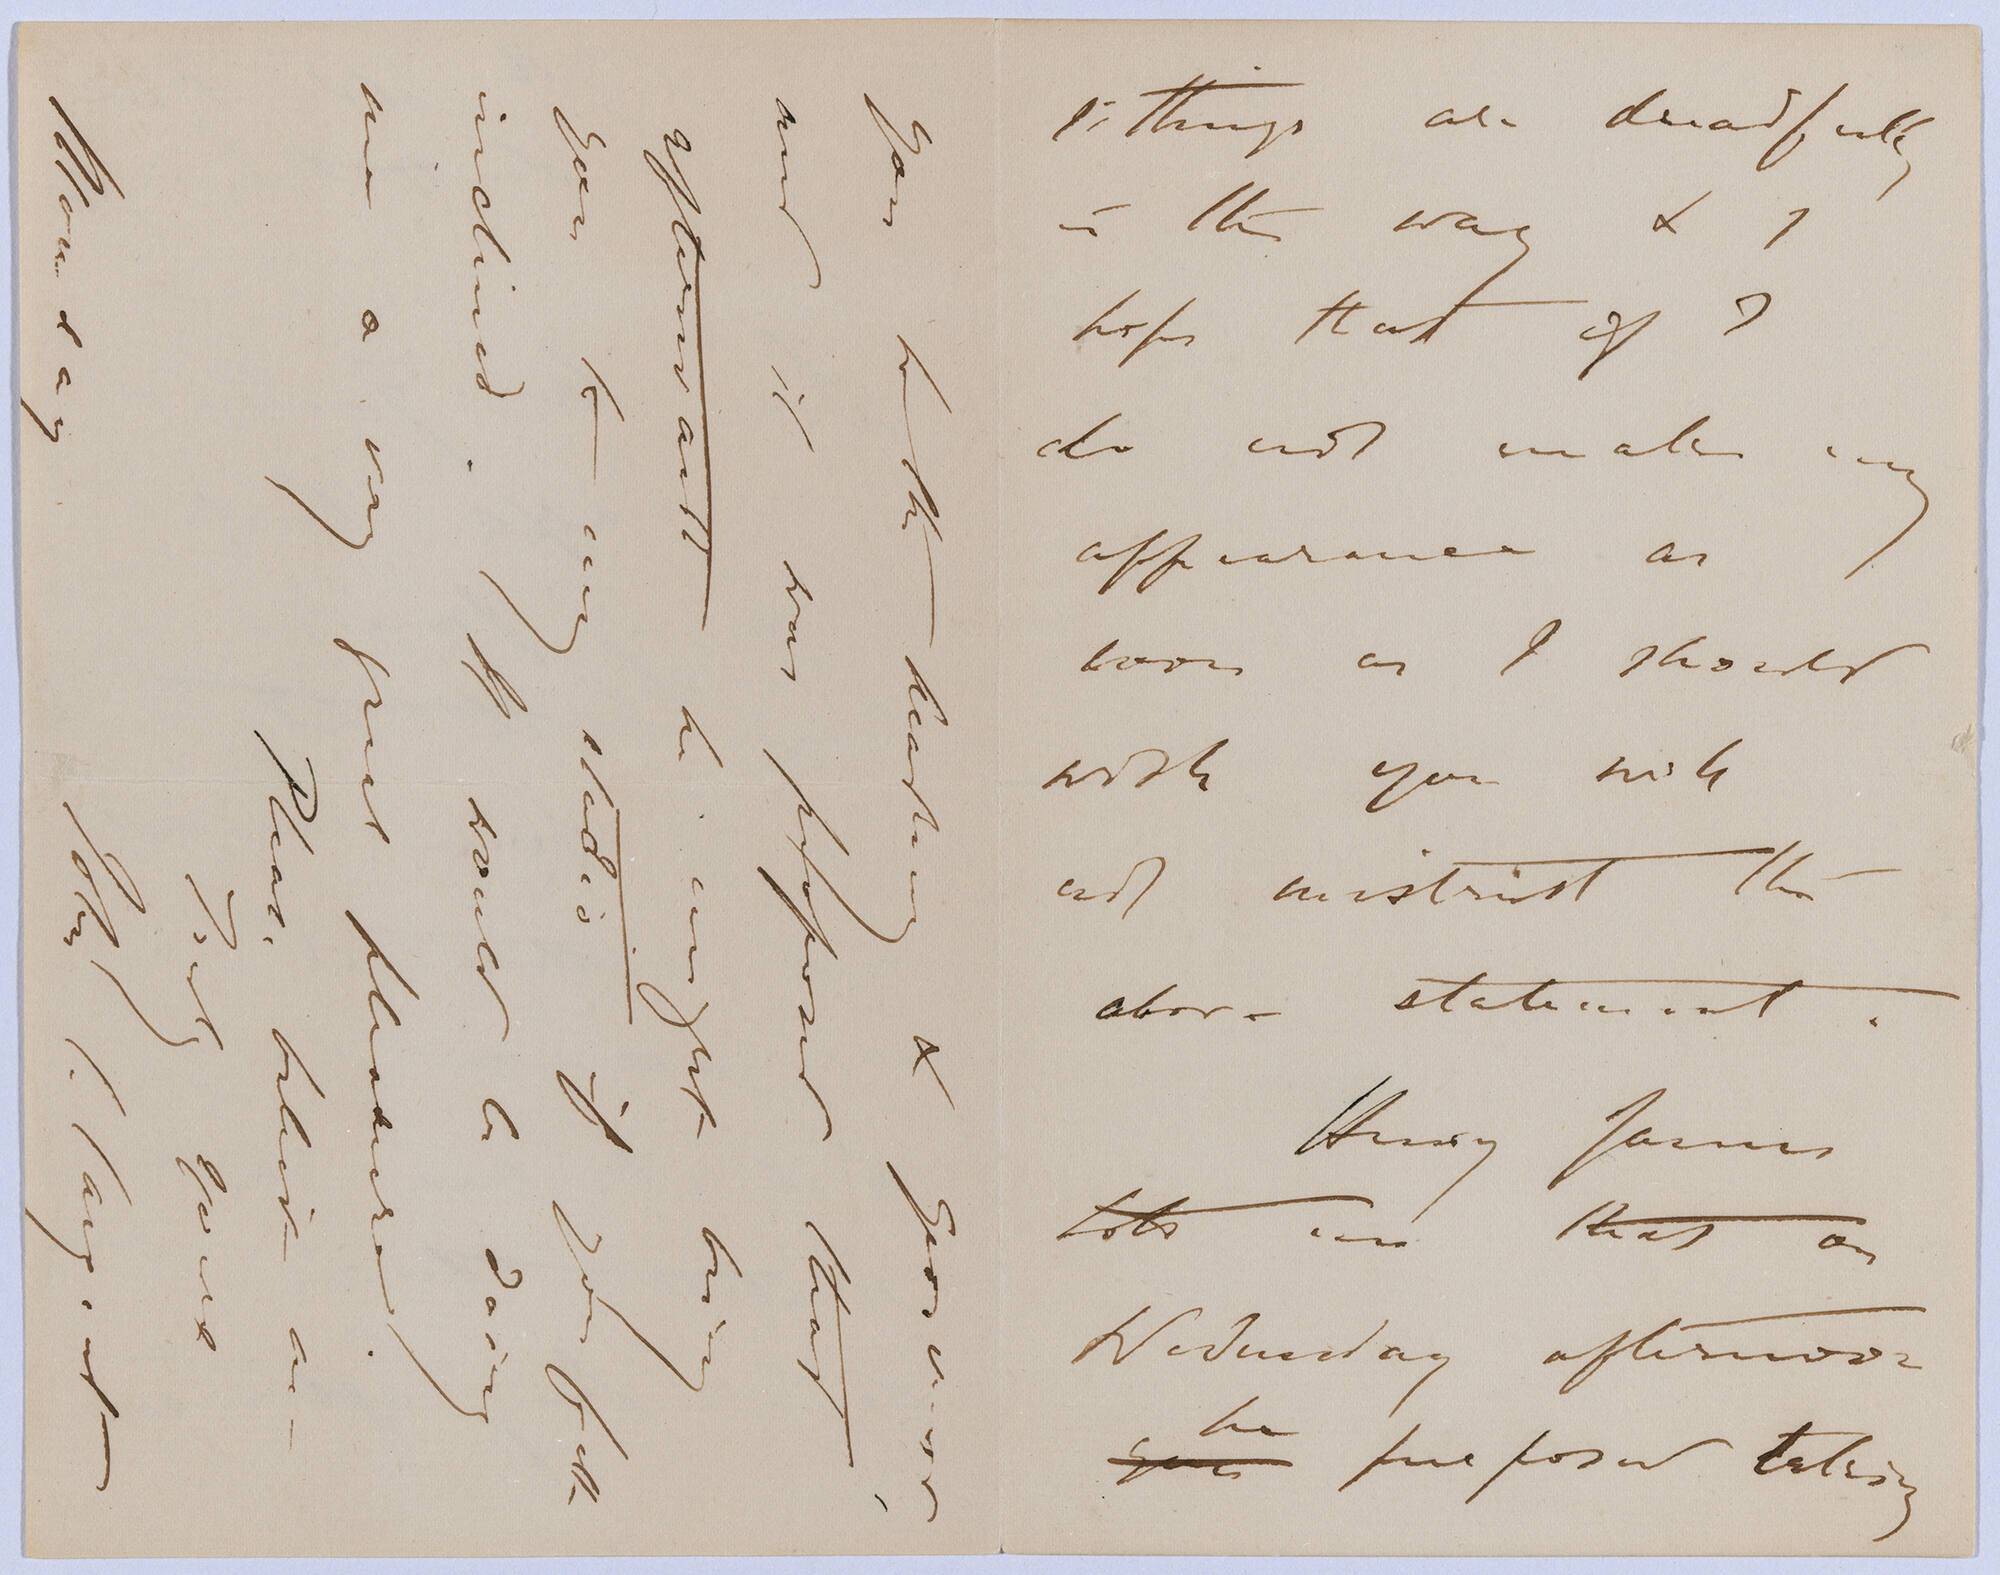 sittings are dreadfully
in the way & I
hope that if I
do not make my
appearance as
soon as I should
wish you will
not mistrust the
above statement.
Henry James
told me that on
Wednesday afternoon
he
you purposed taking
you both sketching & Grosvenor
and it was proposed that,
afterwards he might bring
you to my studio if you felt
inclined. It would be doing
me a very great pleasure.
Please believe me
Yrs
John S. Sargent
Monday